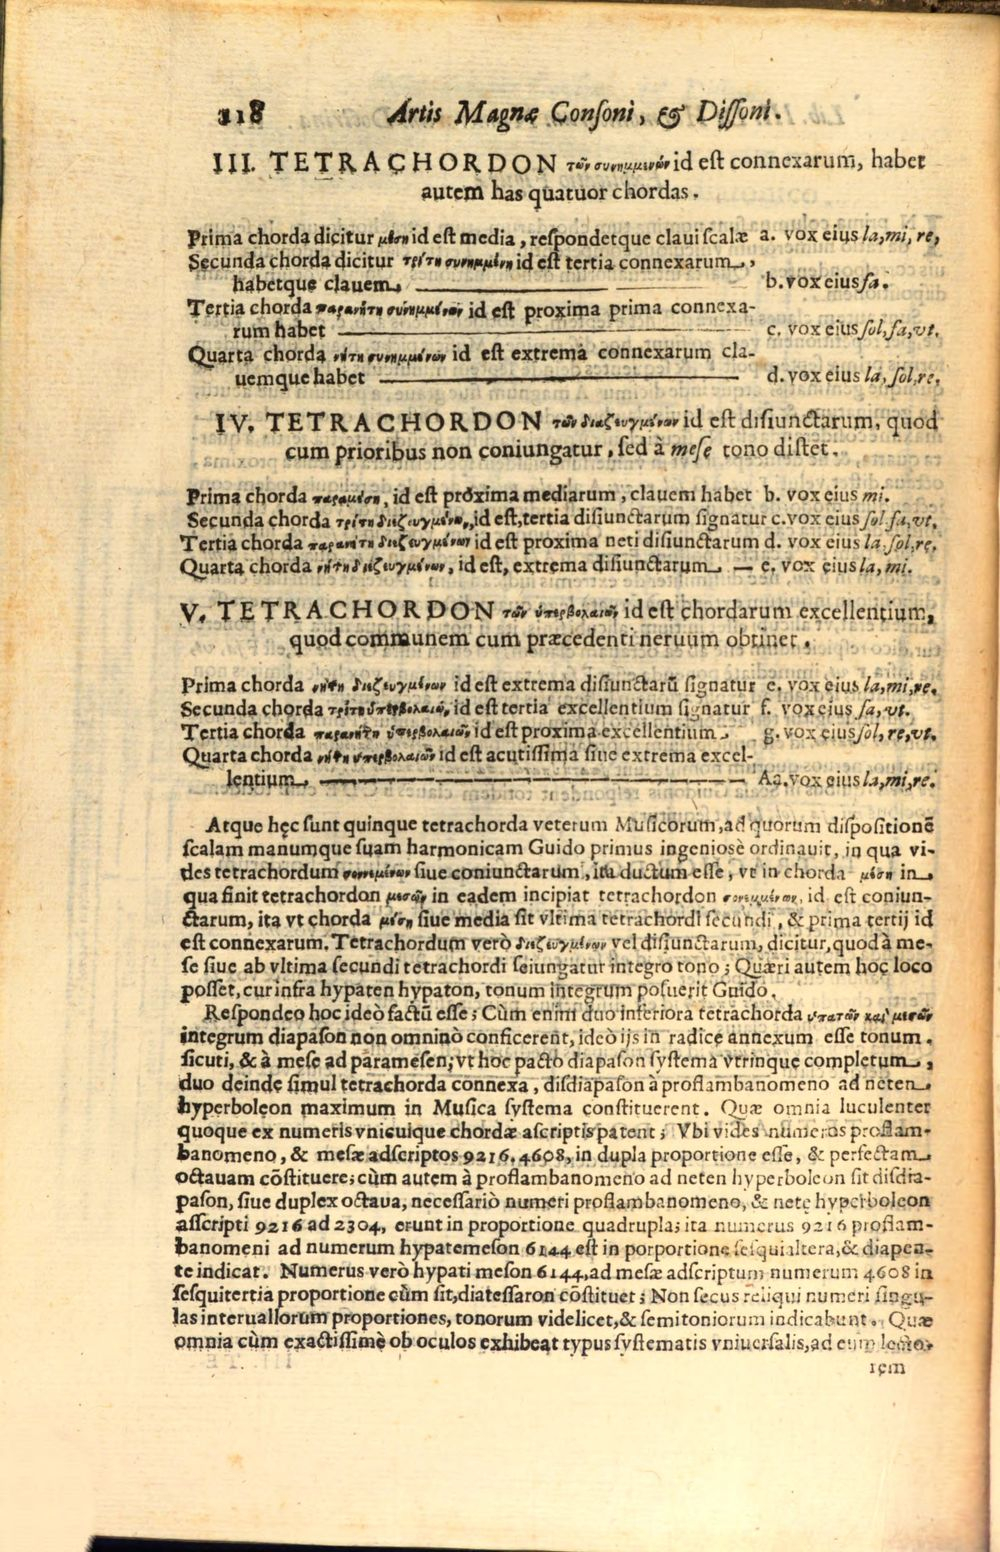 118 Artis Magnæ Conſoni, & Diſſoni.
III. TETRACHORDON τῶν συνημμενῶν id eſt connexarum, habet
autem has quatuor chordas.
Prima chorda dicitur μέση id eſt media, reſpondetque claui ſcalæ a. vox eius la, mi, re,
Secunda chorda dicitur τρίτη συνημμένη id eſt tertia connexarum,
habetque clauem b. vox eius fa.
Tertia chorda παρανήτη συνημμένων id eſt proxima prima connexa-
rum habet c. vox eius ſol, fa, vt.
Quarta chorda νήτη συνημμένων id eſt extrema connexarum cla-
uemque habet d. vox eius la, ſol, re.
IV. TETRACHORDON τῶν διαζευγμένων id eſt diſiunctarum, quod
cum prioribus non coniungatur, ſed à meſe tono diſtet.
Prima chorda παραμέση, id eſt próxima mediarum, clauem habet b. vox eius mi.
Secunda chorda τρίτη διεζευγμένων, id eſt, tertia diſiunctarum ſignatur c. vox eius ſol fa, vt,
Tertia chorda παρανήτη διεζευγμένων id eſt proxima neti diſiunctarum d. vox eius la, ſol, re.
Quarta chorda νήτη διεζευγμένων, id eſt, extrema diſiunctarum — e. vox eius la, mi.
V. TETRACHORDON τῶν ὑπερβολαιῶν id eſt chordarum excellentium,
quod communem cum præcedenti neruum obtinet.
Prima chorda νήτη διεζευγμένων id eſt extrema diſiunctarũ ſignatur e. vox eius la, mi, re.
Secunda chorda τρίτη ὑπερβολαιῶν, id eſt tertia excellentium ſignatur f. vox eius fa, vt.
Tertia chorda παρανήτη ὑπερβολαιῶν id eſt proxima excellentium g. vox eius ſol, re, vt.
Quarta chorda νήτη ὑπερβολαιῶν id eſt acutiſſima ſiue extrema excel-
lentium Aa. vox eius la, mi, re.
Atque hęc ſunt quinque tetrachorda veterum Muſicorum, ad quorum diſpoſitionẽ
ſcalam manumque ſuam harmonicam Guido primus ingenioſè ordinauit, in qua vi-
des tetrachordum συνημένων ſiue coniunctarum, ita ductum eſſe, vt in chorda μέση in
qua finit tetrachordon μεσῶν in eadem incipiat tetrachordon συνεμμένων, id eſt coniun-
ctarum, ita vt chorda μέση ſiue media ſit vltima tetrachordi ſecundi, & prima tertij id
eſt connexarum. Tetrachordum verò διεζευγμένων vel diſiunctarum, dicitur, quod à me-
ſe ſiue ab vltima ſecundi tetrachordi ſeiungatur integro tono; Quæri autem hoc loco
poſſet, cur infra hypaten hypaton, tonum integrum poſuerit Guido.
Reſpondeo hoc ideò factũ eſſe; Cùm enim duo inferiora tetrachorda ὑπατῶν καὶ μεσῶν
integrum diapaſon non omninò conficerent, ideò ijs in radice annexum eſſe tonum.
ſicuti, & à meſe ad parameſen; vt hoc pacto diapaſon ſyſtema vtrinque completum,
duo deinde ſimul tetrachorda connexa, diſdiapaſon à proſlambanomeno ad neten
hyperboleon maximum in Muſica ſyſtema conſtituerent. Quæ omnia luculenter
quoque ex numeris vnicuique chordæ aſcriptis patent; Vbi vides numeros proſlam-
banomeno, & meſæ adſcriptos 9216. 4608, in dupla proportione eſſe, & perfectam
octauam cõſtituere; cùm autem à proſlambanomeno ad neten hyperboleon ſit diſdia-
paſon, ſiue duplex octaua, neceſſariò numeri proſlambanomeno, & nete hyperboleon
aſſcripti 9216 ad 2304, erunt in proportione quadrupla; ita numerus 9216 proſlam-
banomeni ad numerum hypatemeſon 6144 eſt in porportione ſeſquialtera, & diapen-
te indicat. Numerus verò hypati meſon 6144, ad meſæ adſcriptum numerum 4608 in
ſeſquitertia proportione cùm ſit, diateſſaron cõſtituet; Non ſecus reliqui numeri ſingu-
las interuallorum proportiones, tonorum videlicet, & ſemitoniorum indicabunt. Quæ
omnia cùm exactiſſimè ob oculos exhibeat typus ſyſtematis vniuerſalis, ad eum lecto-
rem